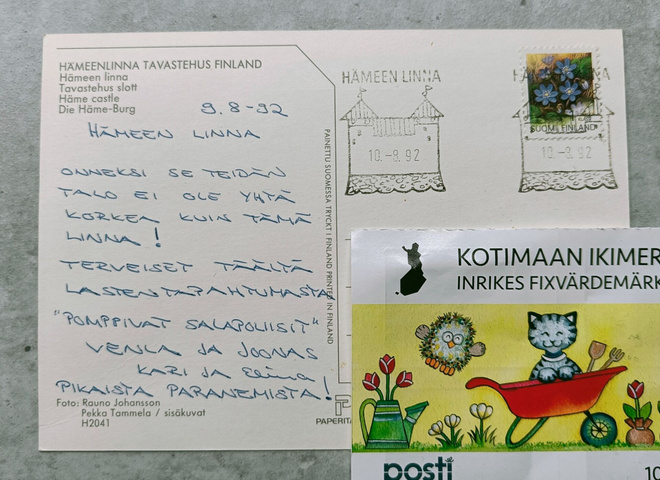 HÄMEENLINNA TAVASTEHUS FINLAND
Hämeen linna
Tavastehus slott
Häme castle
Die Häme-Burg
9.8-92
HÄMEEN LINNA
ONNEKSI SE TEIDÄN
TALO EI OLE YHTÄ
KORKEA KUIN TÄMÄ
LINNA!
TERVEISET TÄÄLTÄ
LASTENTAPAHTUMASTA
"POMPPIVAT SALAPOLIISIT"
VENLA JA JOONAS
KARI JA Elina
PIKAISTA PARANEMISTA!
Foto: Rauno Johansson
Pekka Tammela / sisäkuvat
H2041
PAINETTU SUOMESSA TRYCKT I FINLAND PRINTED IN FINLAND
HÄMEEN LINNA
10.-8.92
SUOMI FINLAND
10.-8.92
KOTIMAAN IKIMER
INRIKES FIXVÄRDEMÄRK
posti
10